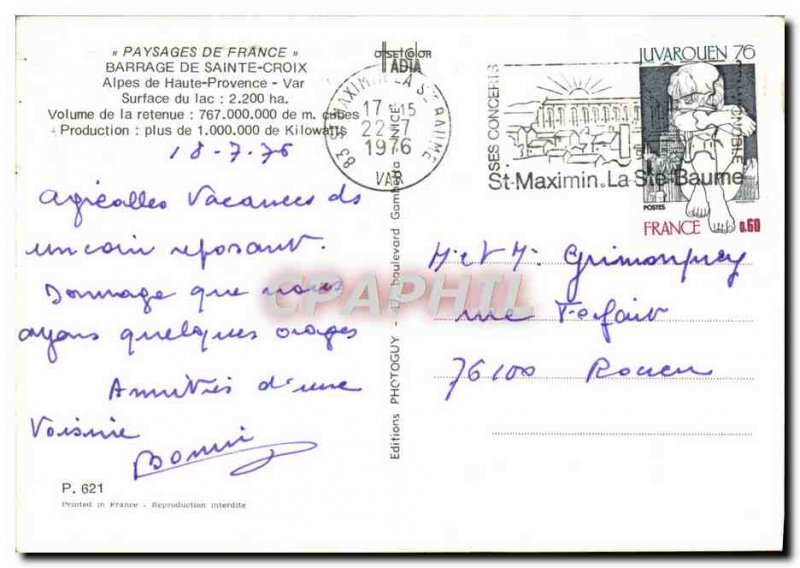 « PAYSAGES DE FRANCE »
BARRAGE DE SAINTE-CROIX
Alpes de Haute-Provence - Var
Surface du lac : 2.200 ha.
Volume de la retenue : 767.000.000 de m. cubes
Production : plus de 1.000.000 de Kilowatts
18-7-76
Agréables Vacances ds
un coin reposant.
Dommage que nous
ayons quelques orages
Amitiés d'une
Voisine
P. 621
Printed in France - Reproduction interdite
OFFSETCOLOR
ADIA
Editions PHOTOGUY - 47, boulevard Gambetta NICE
83 ST MAXIMIN LA STE BAUME
17 15
22-7
1976
VAR
SES CONCERTS
St-Maximin.La Ste-Baume
JUVAROUEN 76
POSTES
FRANCE 0.60
M et M. Grimonprey
rue
76100 Rouen
CPAPHIL